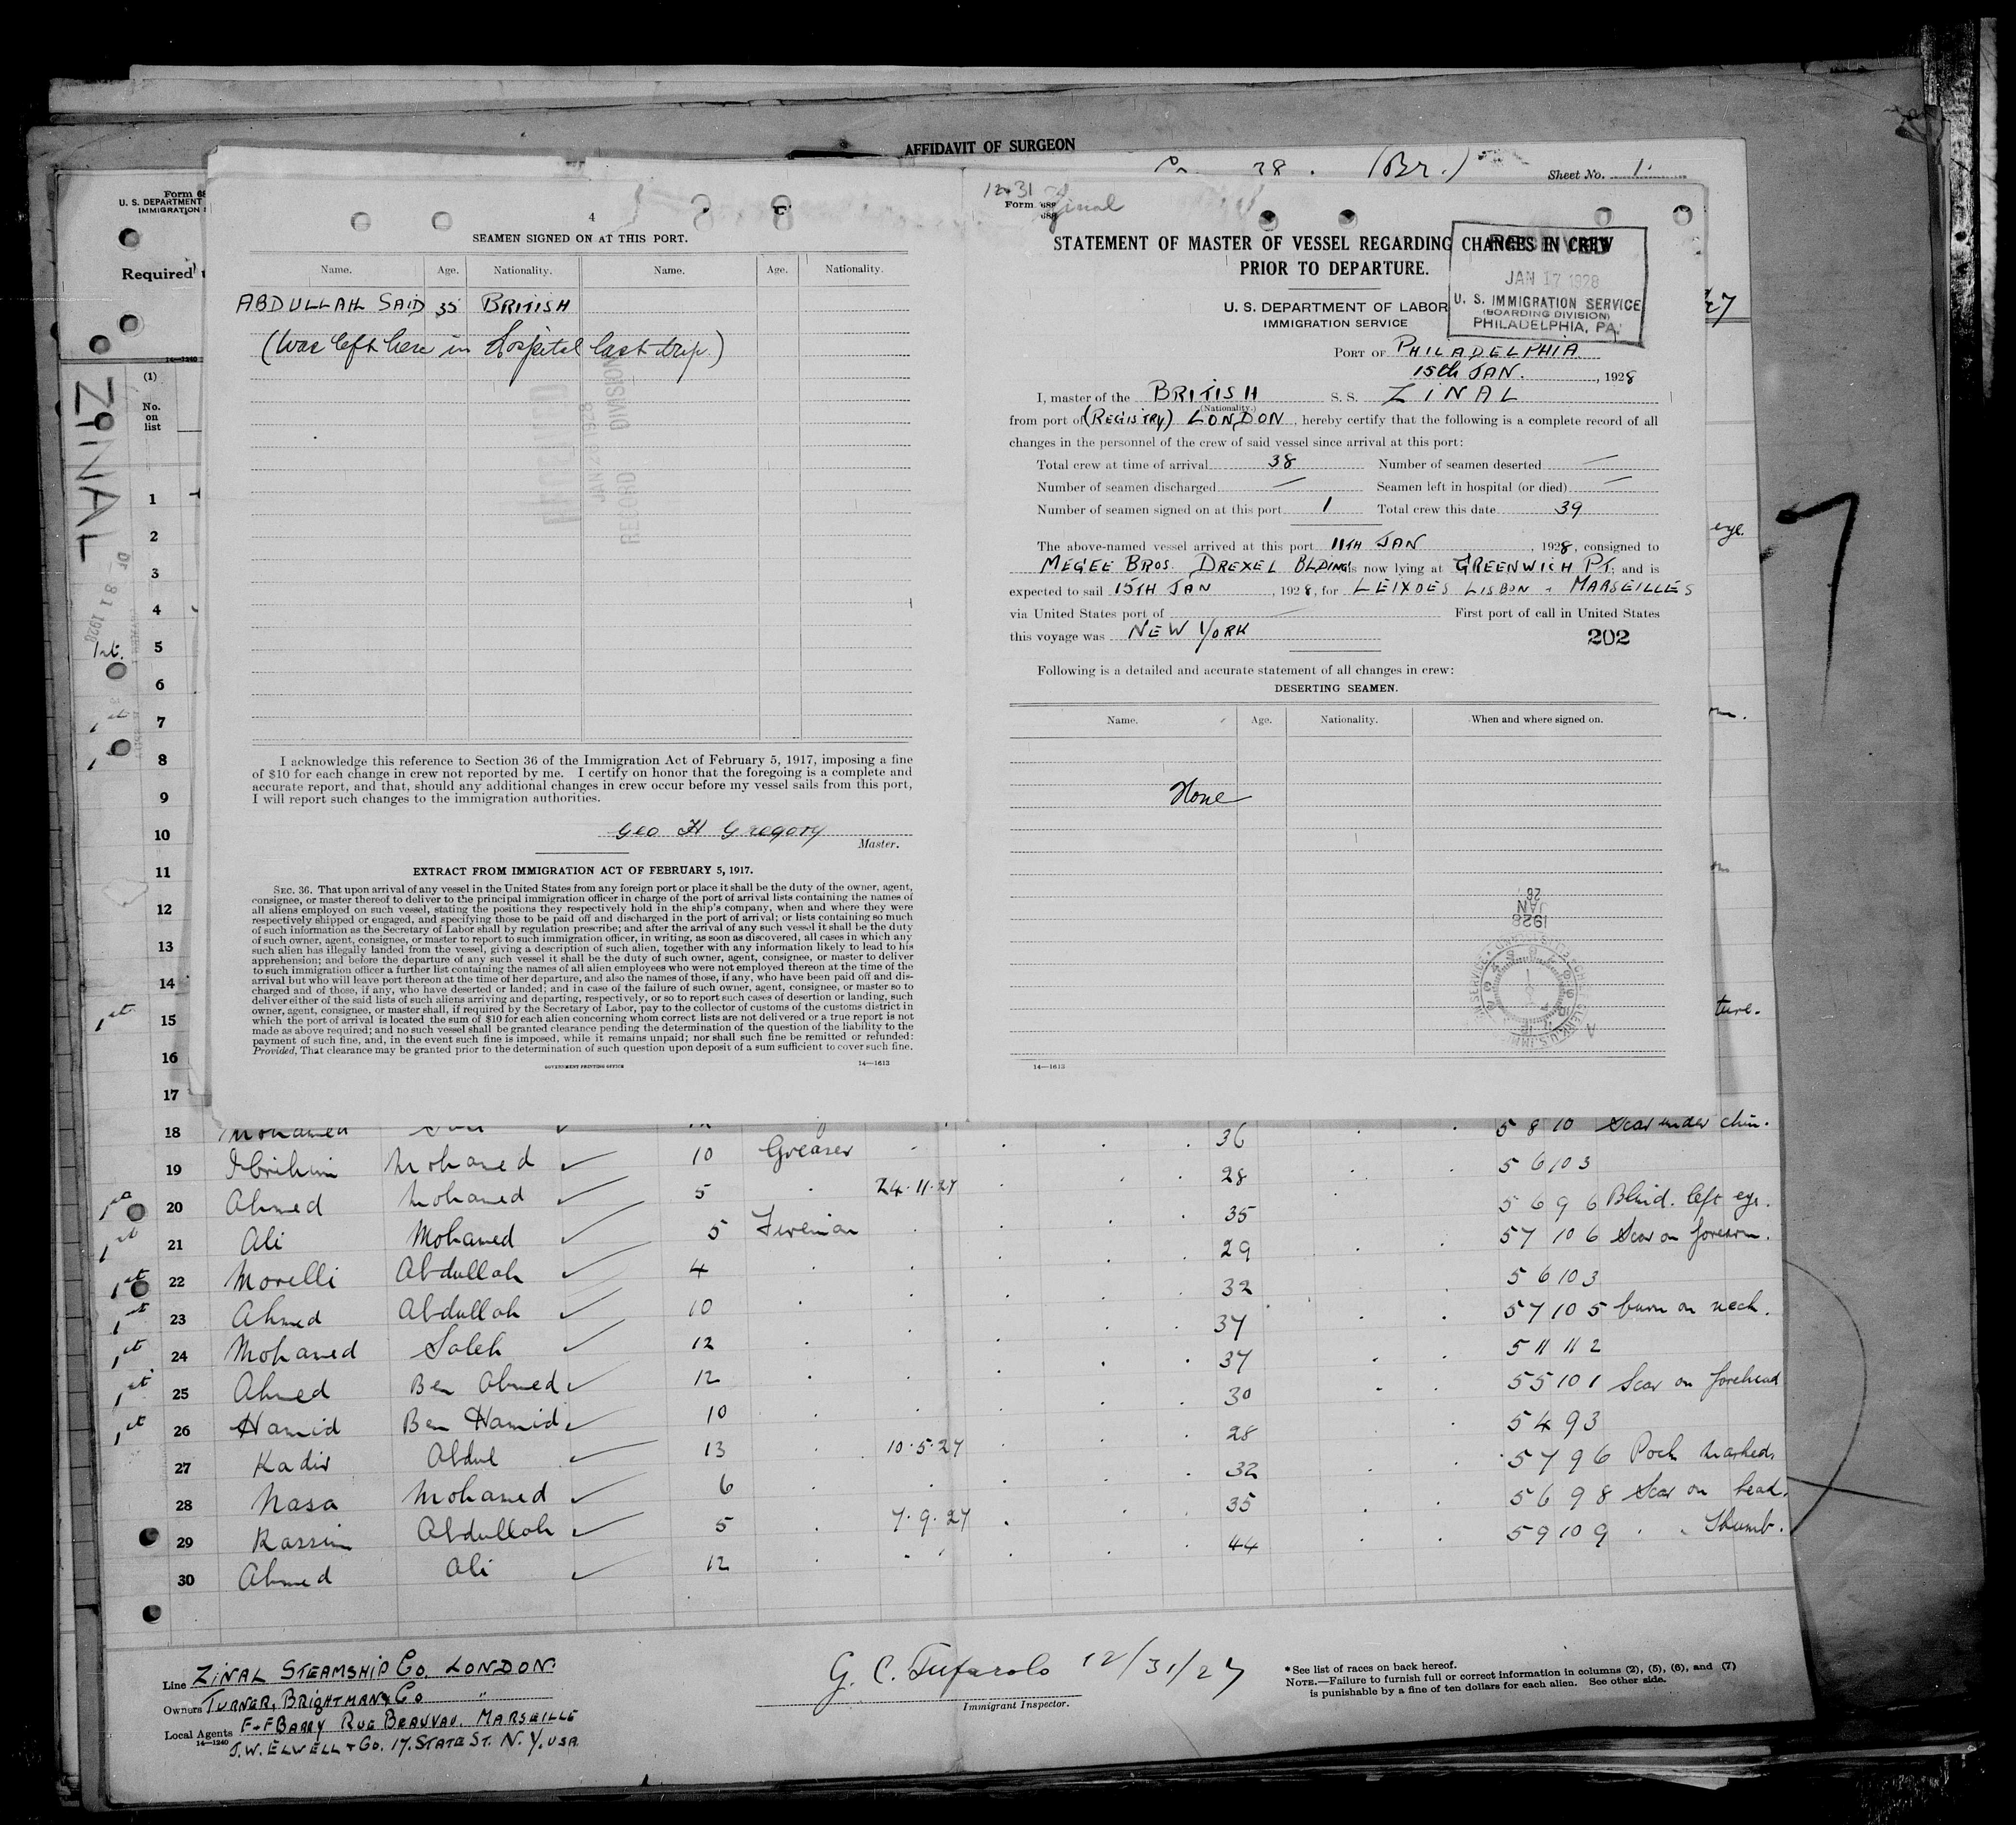 AFFIDAVIT OF SURGEON
(Br.)
Sheet No. 1.
Form 68
U. S. DEPARTMENT
IMMIGRATION
Required
14—1240
(1)
No.
on
list
ZINAL
4
SEAMEN SIGNED ON AT THIS PORT.
Name. Age. Nationality. Name. Age. Nationality.
ABDULLAH SAID 35 BRITISH
(Was left here in Hospital last trip.)
I acknowledge this reference to Section 36 of the Immigration Act of February 5, 1917, imposing a fine
of $10 for each change in crew not reported by me. I certify on honor that the foregoing is a complete and
accurate report, and that, should any additional changes in crew occur before my vessel sails from this port,
I will report such changes to the immigration authorities.
Geo H Gregory
Master.
EXTRACT FROM IMMIGRATION ACT OF FEBRUARY 5, 1917.
SEC. 36. That upon arrival of any vessel in the United States from any foreign port or place it shall be the duty of the owner, agent,
consignee, or master thereof to deliver to the principal immigration officer in charge of the port of arrival lists containing the names of
all aliens employed on such vessel, stating the positions they respectively hold in the ship's company, when and where they were
respectively shipped or engaged, and specifying those to be paid off and discharged in the port of arrival; or lists containing so much
of such information as the Secretary of Labor shall by regulation prescribe; and after the arrival of any such vessel it shall be the duty
of such owner, agent, consignee, or master to report to such immigration officer, in writing, as soon as discovered, all cases in which any
such alien has illegally landed from the vessel, giving a description of such alien, together with any information likely to lead to his
apprehension; and before the departure of any such vessel it shall be the duty of such owner, agent, consignee, or master to deliver
to such immigration officer a further list containing the names of all alien employees who were not employed thereon at the time of the
arrival but who will leave port thereon at the time of her departure, and also the names of those, if any, who have been paid off and dis-
charged and of those, if any, who have deserted or landed; and in case of the failure of such owner, agent, consignee, or master so to
deliver either of the said lists of such aliens arriving and departing, respectively, or so to report such cases of desertion or landing, such
owner, agent, consignee, or master shall, if required by the Secretary of Labor, pay to the collector of customs of the customs district in
which the port of arrival is located the sum of $10 for each alien concerning whom correct lists are not delivered or a true report is not
made as above required; and no such vessel shall be granted clearance pending the determination of the question of the liability to the
payment of such fine, and, in the event such fine is imposed, while it remains unpaid; nor shall such fine be remitted or refunded:
Provided, That clearance may be granted prior to the determination of such question upon deposit of a sum sufficient to cover such fine.
GOVERNMENT PRINTING OFFICE 14—1613
12-31 Zinal
Form 688
STATEMENT OF MASTER OF VESSEL REGARDING CHANGES IN CREW
PRIOR TO DEPARTURE.
U. S. DEPARTMENT OF LABOR
IMMIGRATION SERVICE
RECEIVED
JAN 17 1928
U. S. IMMIGRATION SERVICE
(BOARDING DIVISION)
PHILADELPHIA, PA.
PORT OF PHILADELPHIA
15th JAN. , 1928
I, master of the BRITISH S. S. ZINAL
(Nationality.)
from port of (REGISTRY) LONDON, hereby certify that the following is a complete record of all
changes in the personnel of the crew of said vessel since arrival at this port:
Total crew at time of arrival 38 Number of seamen deserted —
Number of seamen discharged — Seamen left in hospital (or died) —
Number of seamen signed on at this port 1 Total crew this date 39
The above-named vessel arrived at this port 11TH JAN , 1928, consigned to
MEGEE BROS. DREXEL BLDING is now lying at GREENWICH PT. and is
expected to sail 15TH JAN , 1928, for LEIXOES LISBON + MARSEILLES
via United States port of — First port of call in United States
this voyage was NEW YORK
202
Following is a detailed and accurate statement of all changes in crew:
DESERTING SEAMEN.
Name. Age. Nationality. When and where signed on.
None
28
JAN
1928
14—1613
eye.
ture.
1
2
3
4
5
6
7
8
9
10
11
12
13
14
15
16
17
18 Mohamed 36 5 8 10 Scar under chin.
19 Ibrihim Mohamed 10 Greaser 28 5 6 103
20 Ahmed Mohamed 5 24.11.27 35 5 6 9 6 Blind. left eye.
21 Ali Mohamed 5 Fireman 29 5 7 10 6 Scar on forearm.
22 Morelli Abdullah 4 32 5 6 103
23 Ahmed Abdullah 10 37 5 7 10 5 burn on neck.
24 Mohamed Saleh 12 37 5 11 11 2
25 Ahmed Ben Ahmed 12 30 5 5 10 1 Scar on forehead
26 Hamid Ben Hamid 10 28 5 4 9 3
27 Kadir Abdul 13 10.5.27 32 5 7 9 6 Pock marked.
28 Nasa Mohamed 6 35 5 6 9 8 Scar on head.
29 Kassim Abdullah 5 7.9.27 44 5 9 10 9 " " Thumb.
30 Ahmed Ali 12
Line ZINAL STEAMSHIP CO. LONDON.
Owners TURNER, BRIGHTMAN & CO "
Local Agents F + F BARRY RUE BEAUVAU. MARSEILLE
14—1240 J. W. ELWELL + CO. 17. STATE ST. N. Y. USA
G. C. Tufarolo 12/31/27
Immigrant Inspector.
* See list of races on back hereof.
NOTE.—Failure to furnish full or correct information in columns (2), (5), (6), and (7)
is punishable by a fine of ten dollars for each alien. See other side.